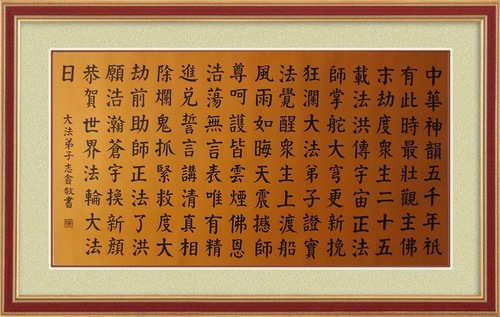 中華神韻五千年祇
有此時最壯觀主佛
末劫度衆生二十五
載法洪傳宇宙正法
師掌舵大穹更新挽
狂瀾大法弟子證實
法覺醒衆生上渡船
風雨如晦天震撼師
尊呵護皆雲煙佛恩
浩蕩無言表唯有精
進兌誓言講清真相
除爛鬼抓緊救度大
劫前助師正法了洪
願浩瀚蒼宇換新顏
恭賀世界法輪大法
日
大法弟子志鑫敬書